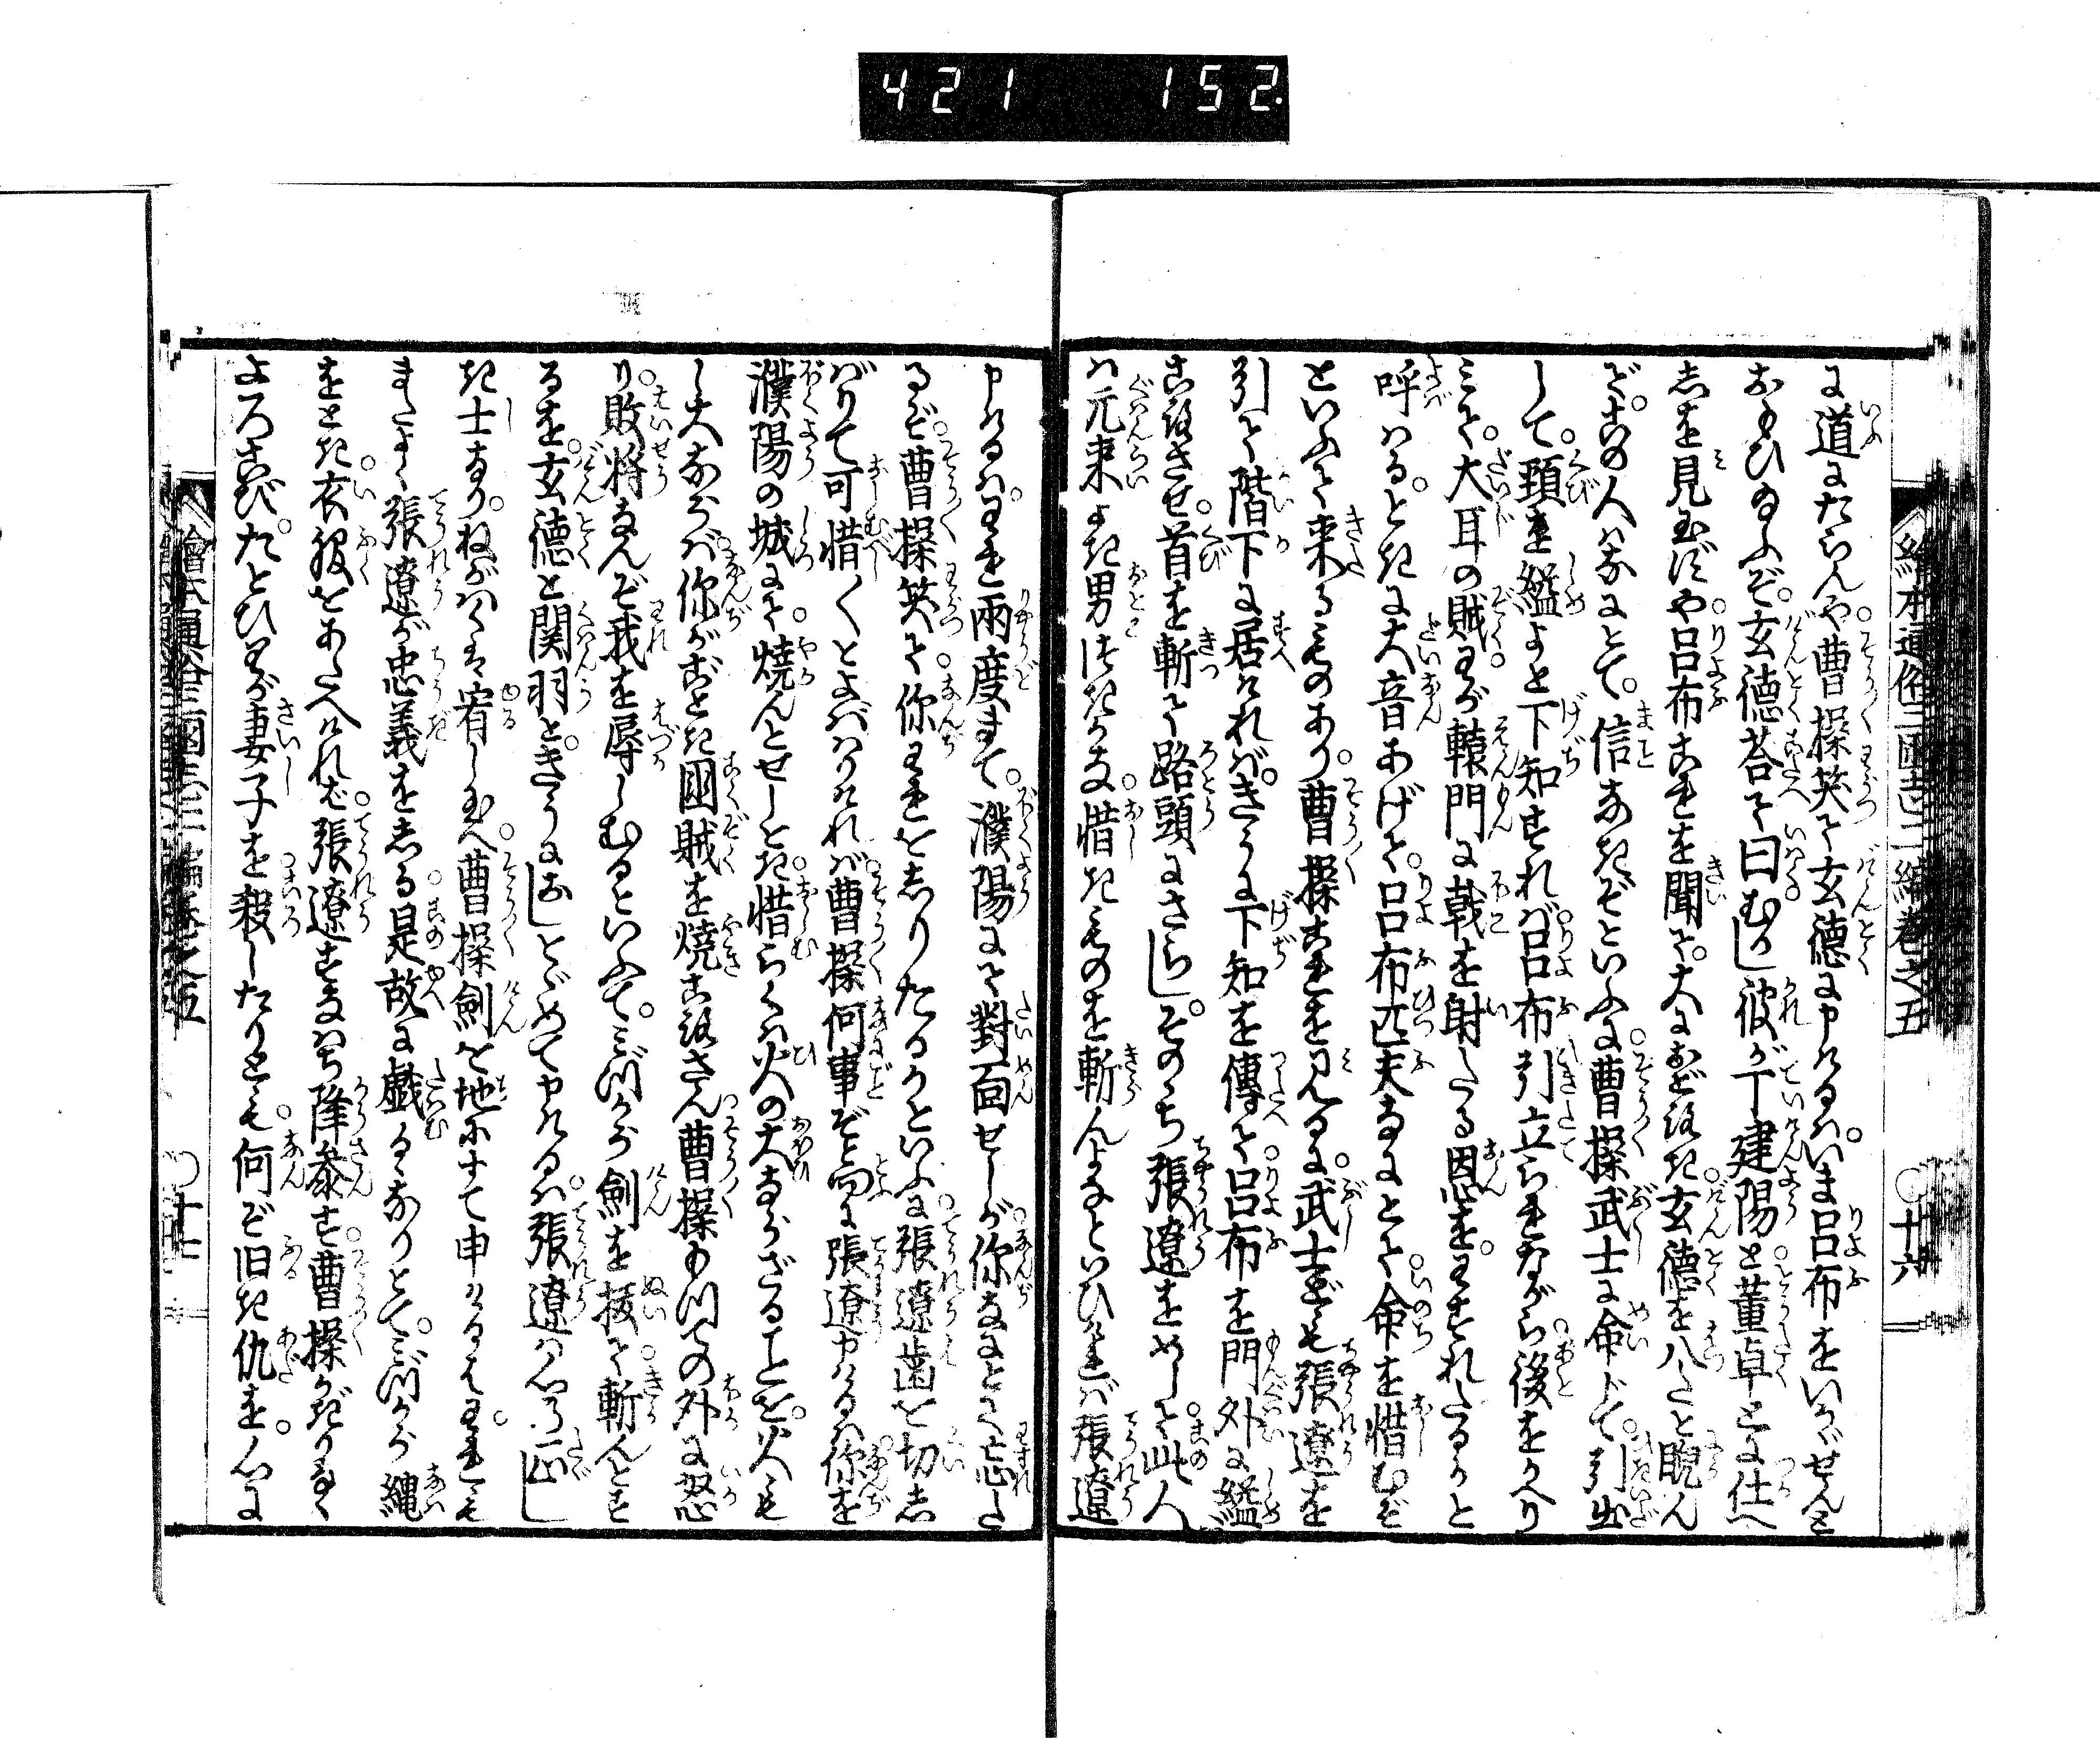 421 152.
繪本通俗三國志二編巻之五 ○十六
に道にたらんや曹操笑て玄徳に申けるはいま呂布をいかゞせんと
おもひ給ふぞ玄徳荅て曰むかし彼が丁建陽と董卓とに仕へ
しを見玉ずや呂布これを聞て大におどろき玄徳を八たと睨ん
でこの人はなはとて信なきぞといふに曹操武士に命じて引出
して頸を縊よと下知すれば呂布引立られながら後をかへり
みて大耳の賊わが轅門に戟を射たる恩をわすれたるかと
呼はるときに大音あげて呂布匹夫なにとて命を惜むぞ
といふて来るものあり曹操これを見るに武士ども張遼を
引て階下に居ければきうに下知を傳て呂布を門外に縊
ころさせ首を斬て路頭にさらしそのゝち張遼をめして此人
は元来よき男なるかな惜きものを斬んよなといひければ張遼
申けるはわれ兩度まで濮陽にて對面せしが你なにとて忘た
るぞ曹操笑て你われをしりたるかといふに張遼歯を切し
ばりて可惜くとよばはりければ曹操何事ぞと問に張遼申けるは你を
濮陽の城にて焼んとせしとき惜らくは火の大ならざることを火も
し大ならば你がごとき國賊を焼ころさん曹操もつての外に怒
り敗将なんぞ我を辱しむるといふてみづから劍を抜て斬んとす
るを玄徳と関羽ときうにおしとゞめて申けるは張遼は心正し
き士なりねがはくは宥し玉へ曹操劍を地にすてて申けるはわれも
またよく張遼が忠義をしる是故に戯るゝなりとてみづから縄
をとき衣服をあたへければ張遼すなはち降参す曹操かぎりなく
よろこびたとひわが妻子を殺したりとも何ぞ旧き仇を心に
繪本通俗三國志二編巻之五 ○十七